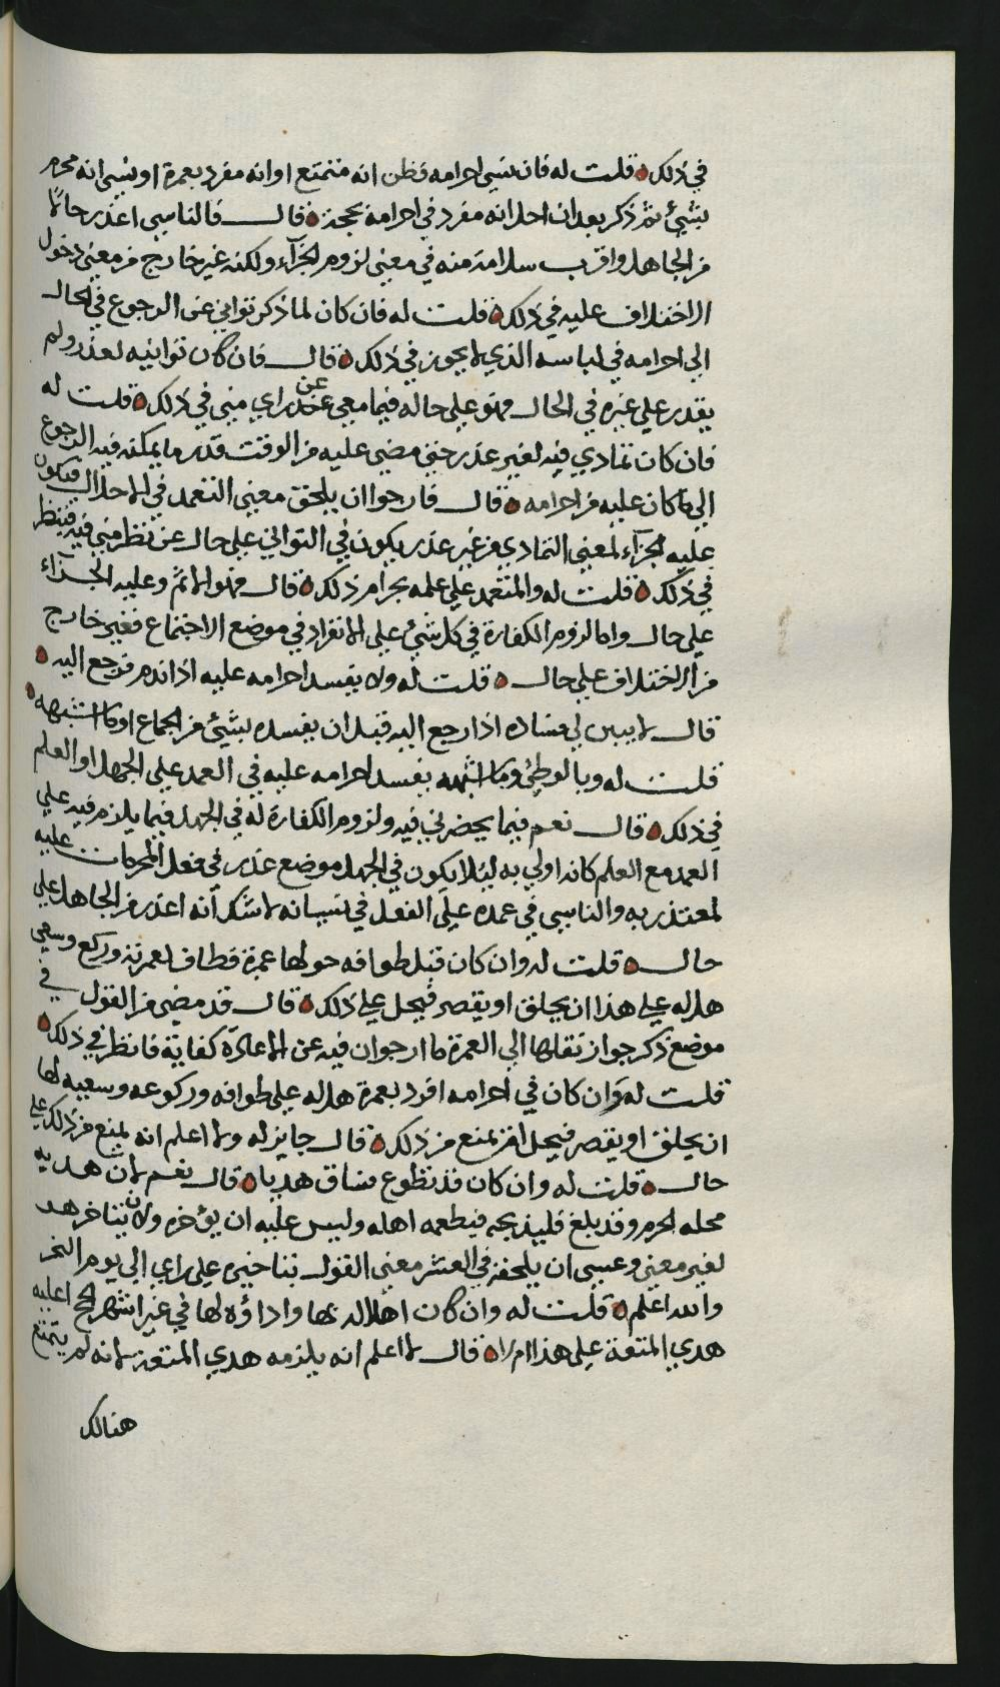 في ذلك قلت له فان نسي احرامه فظن انه متمتع او انه مفرد بعمرة او نسي انه محرم
بشيء ثم ذكر بعد ان احل انه مفرد في احرامه بحجة قال فالناسي اعذر حالا
من الجاهل واقرب سلامة منه في معنى لزوم الجزآء ولكنه غير خارج من معنى دخول
الاختلاف عليه في ذلك قلت له فان كان لما ذكر تواني عن الرجوع في الحال
الي احرامه في لباسه الذي لا يجوز في ذلك قال فان كان توانيه لعذر ولم
يقدر علي غيره في الحال فهو علي حاله فيما معي عن راي مني في ذلك قلت له
فان كان تمادي فيه لغير عذر حتى مضى عليه من الوقت قدر ما يمكنه فيه الرجوع
الي ما كان عليه من احرامه قال فارجوا ان يلحق معنى التعمد في الاحلال فيكون
عليه الجزآء لمعنى التمادي من غير عذر يكون في التواني علي حال عن نظر مني فيه فينظر
في ذلك قلت له والمتعمد علي علمه بحرام ذلك قال فهو الاثم وعليه الجزآء
علي حال واما لزوم الكفارة في كل شيء علي الانفراد في موضع الاجتماع فغير خارج
من الاختلاف علي حال قلت له ولا يفسد احرامه عليه اذا ندم فرجع اليه
قال لا يبين لي فساده اذا رجع اليه قبل ان يفسده بشيء من الجماع او ما اشبهه
قلت له وبالوطئ وما اشبهه يفسد احرامه عليه في العمد علي الجهل او العلم
في ذلك قال نعم فيما يحضرني فيه ولزوم الكفارة له في الجهل فيما يلزم فيه علي
العمد مع العلم كانه اولي به ليلا يكون في الجهل موضع عذر في فعل المحرمات عليه
لمعتذر به والناسي في عمده علي الفعل في نسيانه لا شك انه اعذر من الجاهل علي
حال قلت له وان كان قبل طوافه حولها عمرة فطاف لعمرته وركع وسعي
هل له علي هذا ان يحلق او يقصر فيحل علي ذلك قال قد مضى من القول في
موضع ذكر جواز نقلها الي العمرة ما ارجوان فيه عن الاعادة كفاية فانظر في ذلك
قلت له وان كان في احرامه افرد بعمرة هل له علي طوافه وركوعه وسعيه لها
ان يحلق او يقصر فيحل ام يمنع من ذلك قال جايز له ولا اعلم انه يمنع من ذلك علي
حال قلت له وان كان قد تطوع فساق هديا قال نعم لان هديه
محله الحرم وقد بلغ فليذبحه فيطعمه اهله وليس عليه ان يؤخره ولان يتاخر هد
لغير معنى وعسى ان يلحقه في العشر معنى القول بتاخيره علي راي الي يوم النحر
والله اعلم قلت له وان كان اهلاله بها واداؤه لها في غير اشهر الحج اعليه
هدي المتعة علي هذا ام لا قال لا اعلم انه يلزمه هدي المتعة لانه لم يتمتع
هنالك